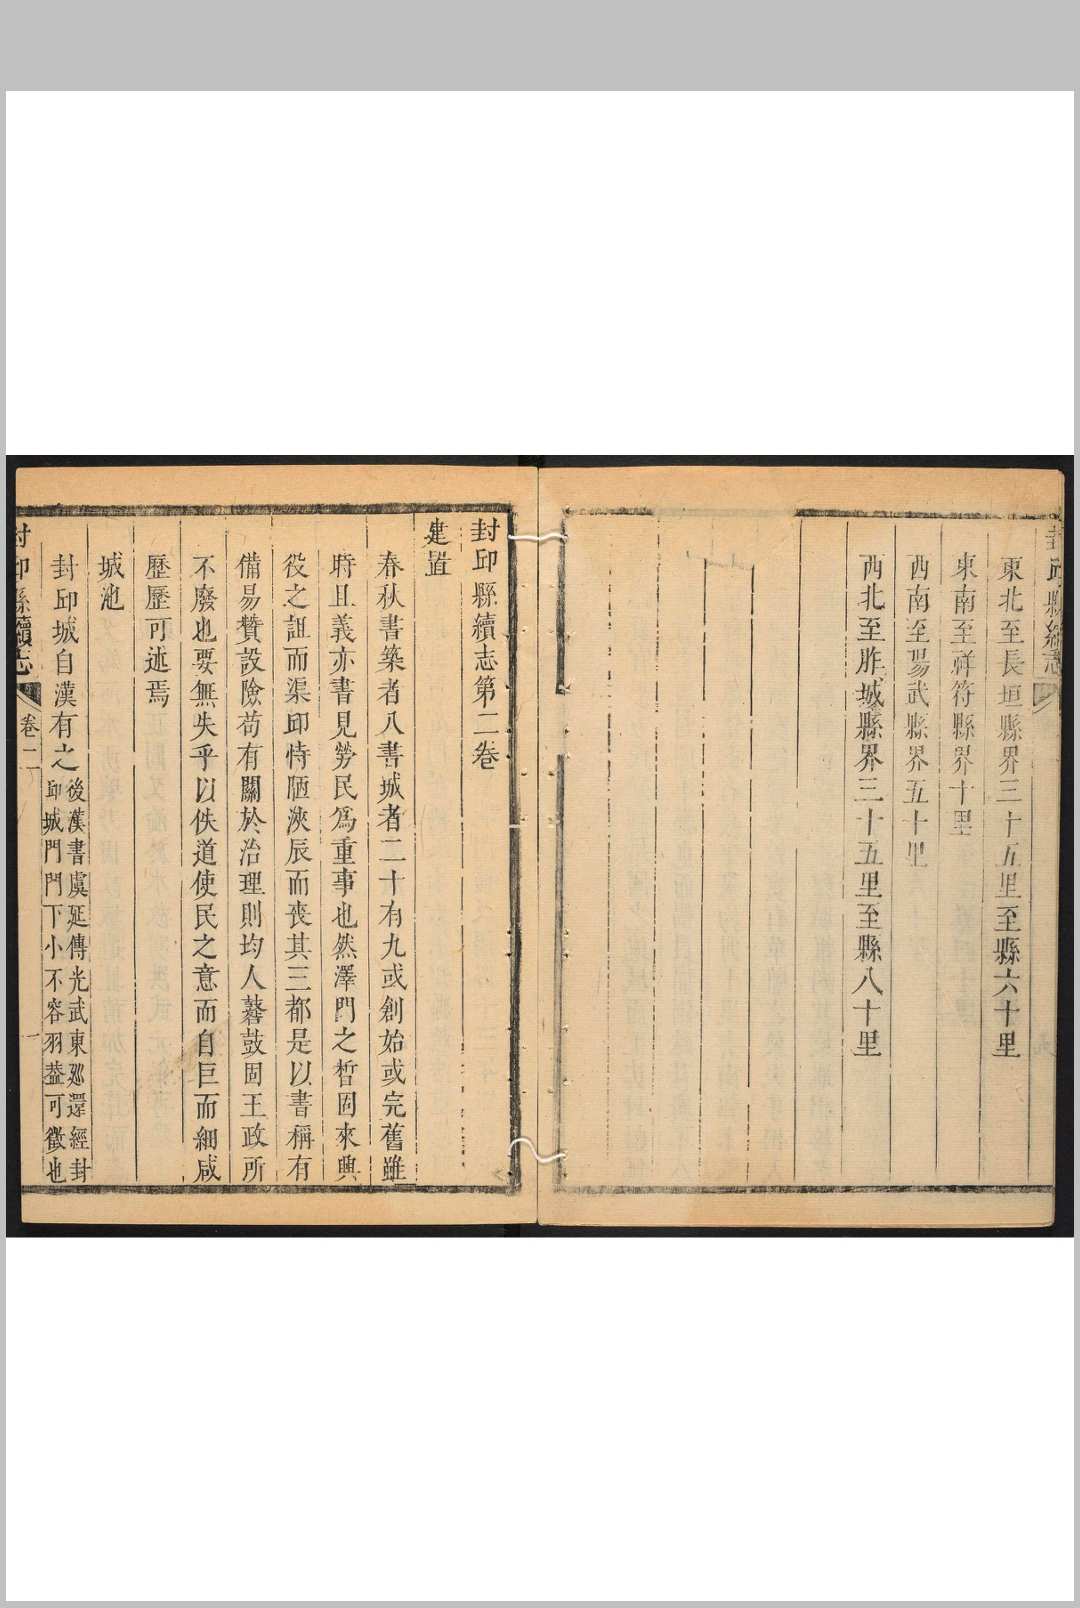 東北至長垣縣界三十五里至縣六十里
東南至祥符縣界十里
西南至陽武縣界五十里
西北至胙城縣界三十五里至縣八十里
封邱縣續志第二卷
建置
春秋書築者八書城者二十有九或創始或完舊雖
時且義亦書見勞民爲重事也然澤門之晳固來興
役之詛而渠邱恃陋浹辰而喪其三都是以書稱有
備易贊設險苟有關於治理則均人鼛鼓固王政所
不廢也要無失乎以佚道使民之意而自巨而細咸
歷歷可述焉
城池
封邱城自漢有之
後漢書虞延傳光武東廵還經封
邱城門門下小不容羽葢可徵也
封邱縣續志
卷二
一